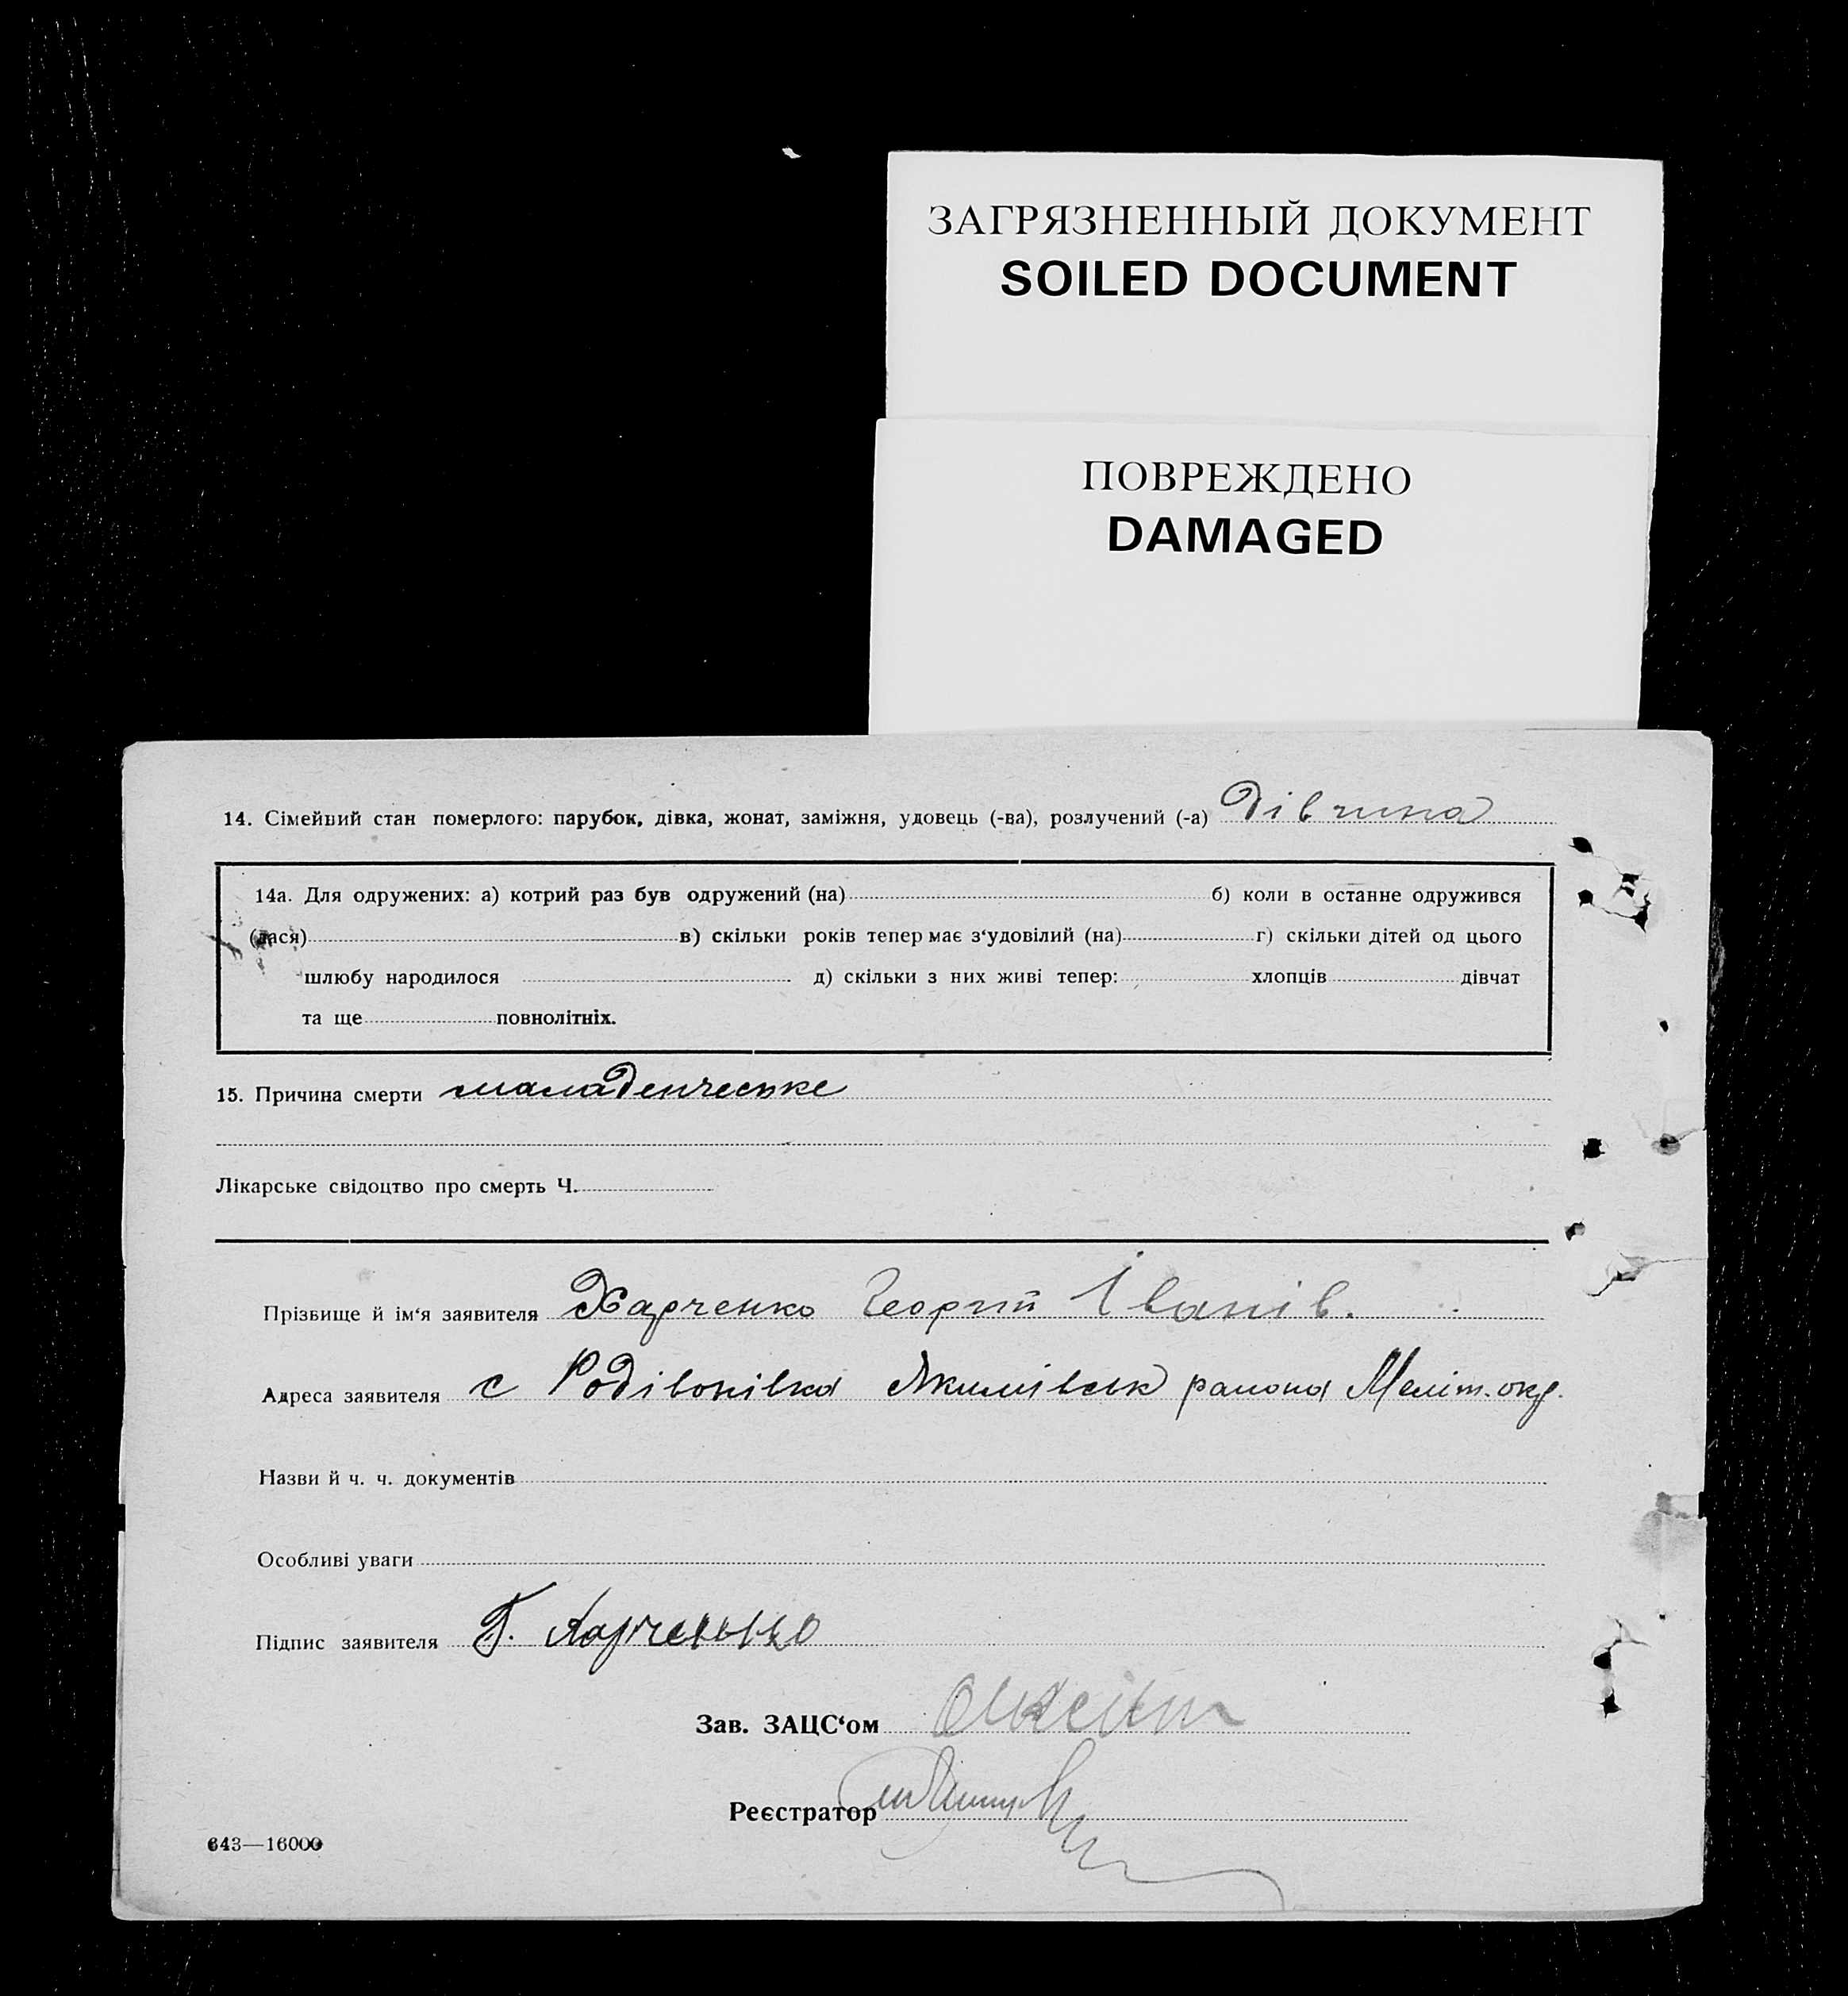 ЗАГРЯЗНЕННЫЙ ДОКУМЕНТ
SOILED DOCUMENT
ПОВРЕЖДЕНО
DAMAGED
14. Сімейний стан померлого: парубок, дівка, жонат, заміжня, удовець (-ва), розлучений (-а) дівчина
14а. Для одружених: а) котрий раз був одружений (на) б) коли в останнє одружився
(лася) в) скільки років тепер має з‘удовілий (на) г) скільки дітей од цього
шлюбу народилося д) скільки з них живі тепер: хлопців дівчат
та ще повнолітніх.
15. Причина смерти маладенчеське
Лікарське свідоцтво про смерть Ч.
Прізвище й ім‘я заявителя Харченко Георгій Іванів.
Адреса заявителя с Родівонівка Якимівськ района Меліт. окр.
Назви й ч. ч. документів
Особливі уваги
Підпис заявителя Г. Харченько
Зав. ЗАЦС‘ом
Реєстратор
643—16000